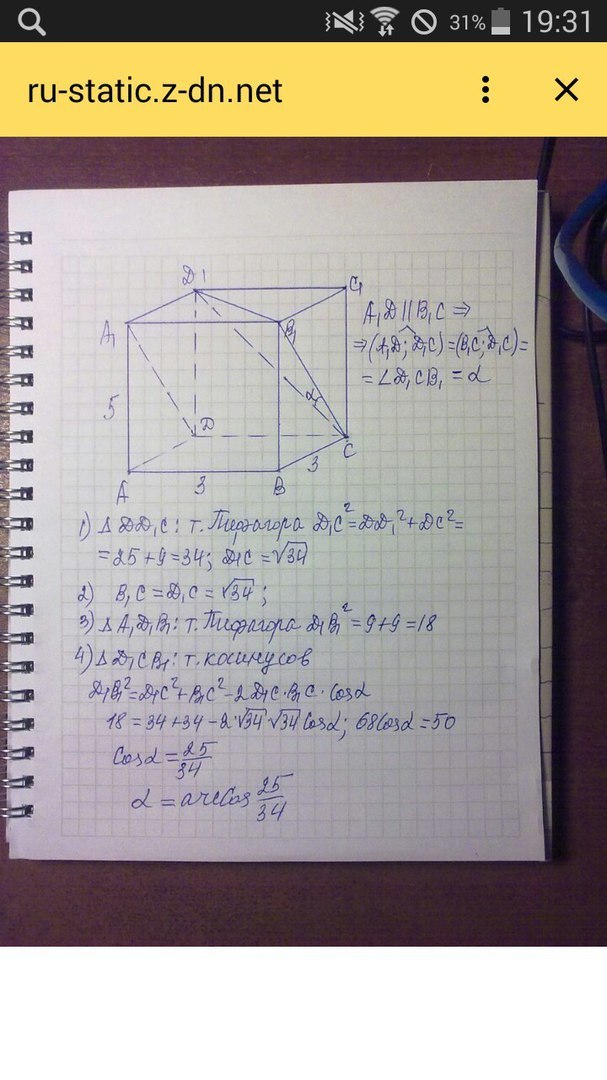 31% 19:31
ru-static.z-dn.net
D1
C1
A1
B1
A1D || B1C ⇒
⇒ (A1D; D1C) = (B1C; D1C) =
= ∠D1CB1 = α
α
5
D
C
3
A
3
B
1) Δ DD1C: т. Пифагора D1C² = DD1² + DC² =
= 25 + 9 = 34; D1C = √34
2) B1C = D1C = √34;
3) Δ A1D1B1: т. Пифагора D1B1² = 9 + 9 = 18
4) Δ D1CB1: т. косинусов
D1B1² = D1C² + B1C² - 2 D1C · B1C · cosα
18 = 34 + 34 - 2·√34·√34 cosα; 68cosα = 50
cosα = 25/34
α = arccos 25/34